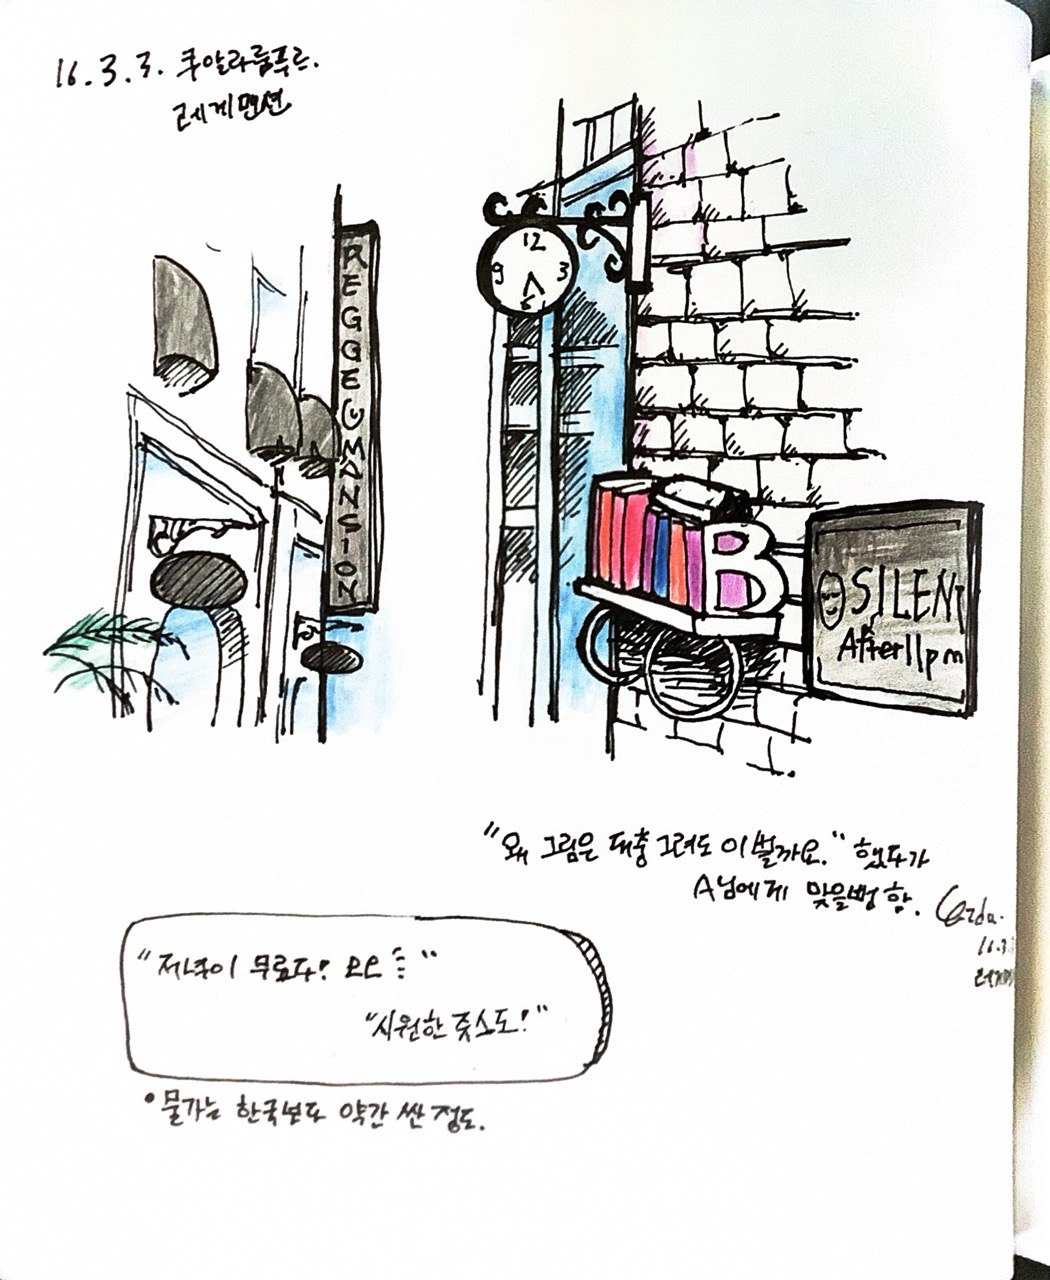 16.3.3. 쿠알라룸푸르.
레게맨션
REGGE MANSION
12
9 3
6
B
SILENT
After 11pm
"왜 그림은 대충 그려도 이쁠까요." 했다가
A님에게 맞을뻔 함.
16.3.
"저녁이 무료다! ㅇㅇ
"시원한 쥬스도!"
•물가는 한국보다 약간 싼 정도.